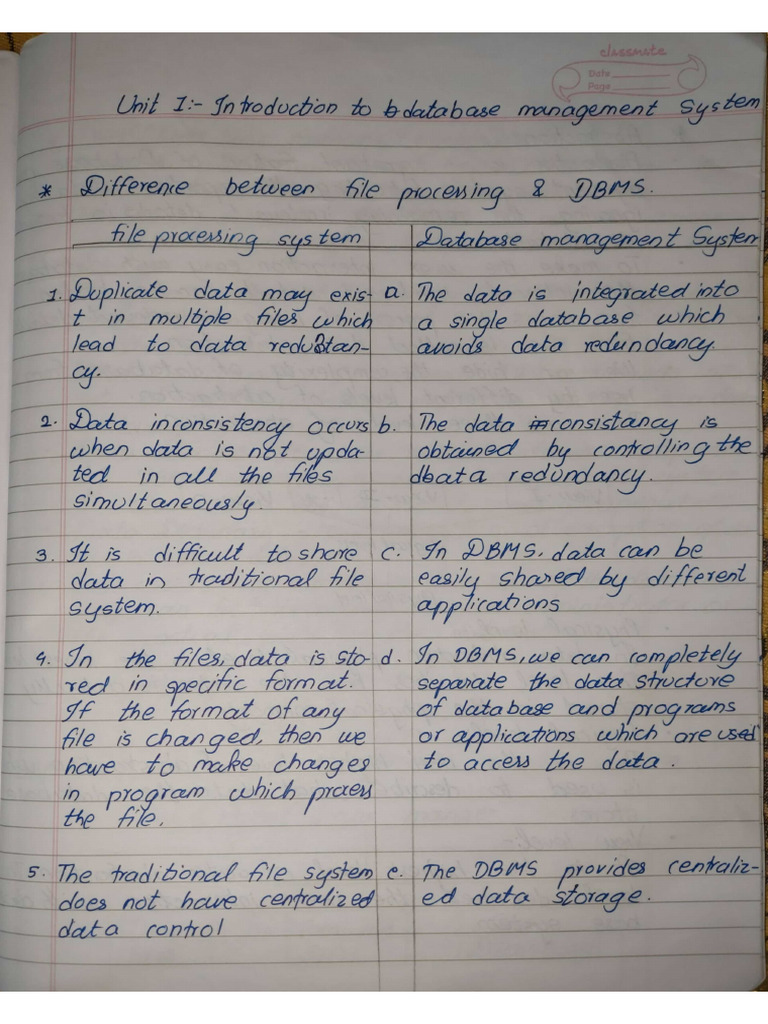 classmate
Date
Page
Unit I:- Introduction to database management System
* Difference between file processing & DBMS.
file processing system
Database management System
1. Duplicate data may exis-
t in multiple files which
lead to data redustan-
cy.
a. The data is integrated into
a single database which
avoids data redundancy.
2. Data inconsistency occurs
when data is not upda-
ted in all the files
simultaneously.
b. The data consistancy is
obtained by controlling the
data redundancy.
3. It is difficult to share
data in traditional file
system.
c. In DBMS, data can be
easily shared by different
applications
4. In the files, data is sto-
red in specific format.
If the format of any
file is changed, then we
have to make changes
in program which process
the file.
d. In DBMS, we can completely
separate the data structure
of database and programs
or applications which are used
to access the data.
5. The traditional file system
does not have centralized
data control
e. The DBMS provides centraliz-
ed data storage.